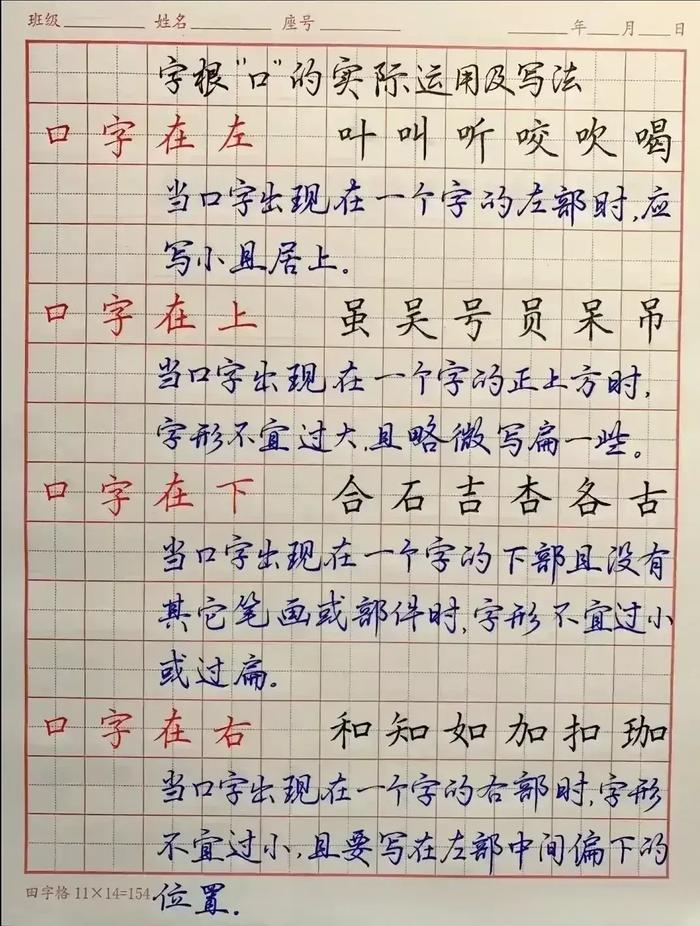 班级 姓名 座号 年 月 日
字根"口"的实际运用及写法
口字在左 叶叫听咬吹喝
当口字出现在一个字的左部时,应
写小且居上。
口字在上 虽吴号员呆吊
当口字出现在一个字的正上方时,
字形不宜过大,且略微写扁一些。
口字在下 合石吉杏各古
当口字出现在一个字的下部且没有
其它笔画或部件时,字形不宜过小
或过扁。
口字在右 和知如加扣珈
当口字出现在一个字的右部时,字形
不宜过小,且要写在左部中间偏下的
位置.
田字格 11×14=154